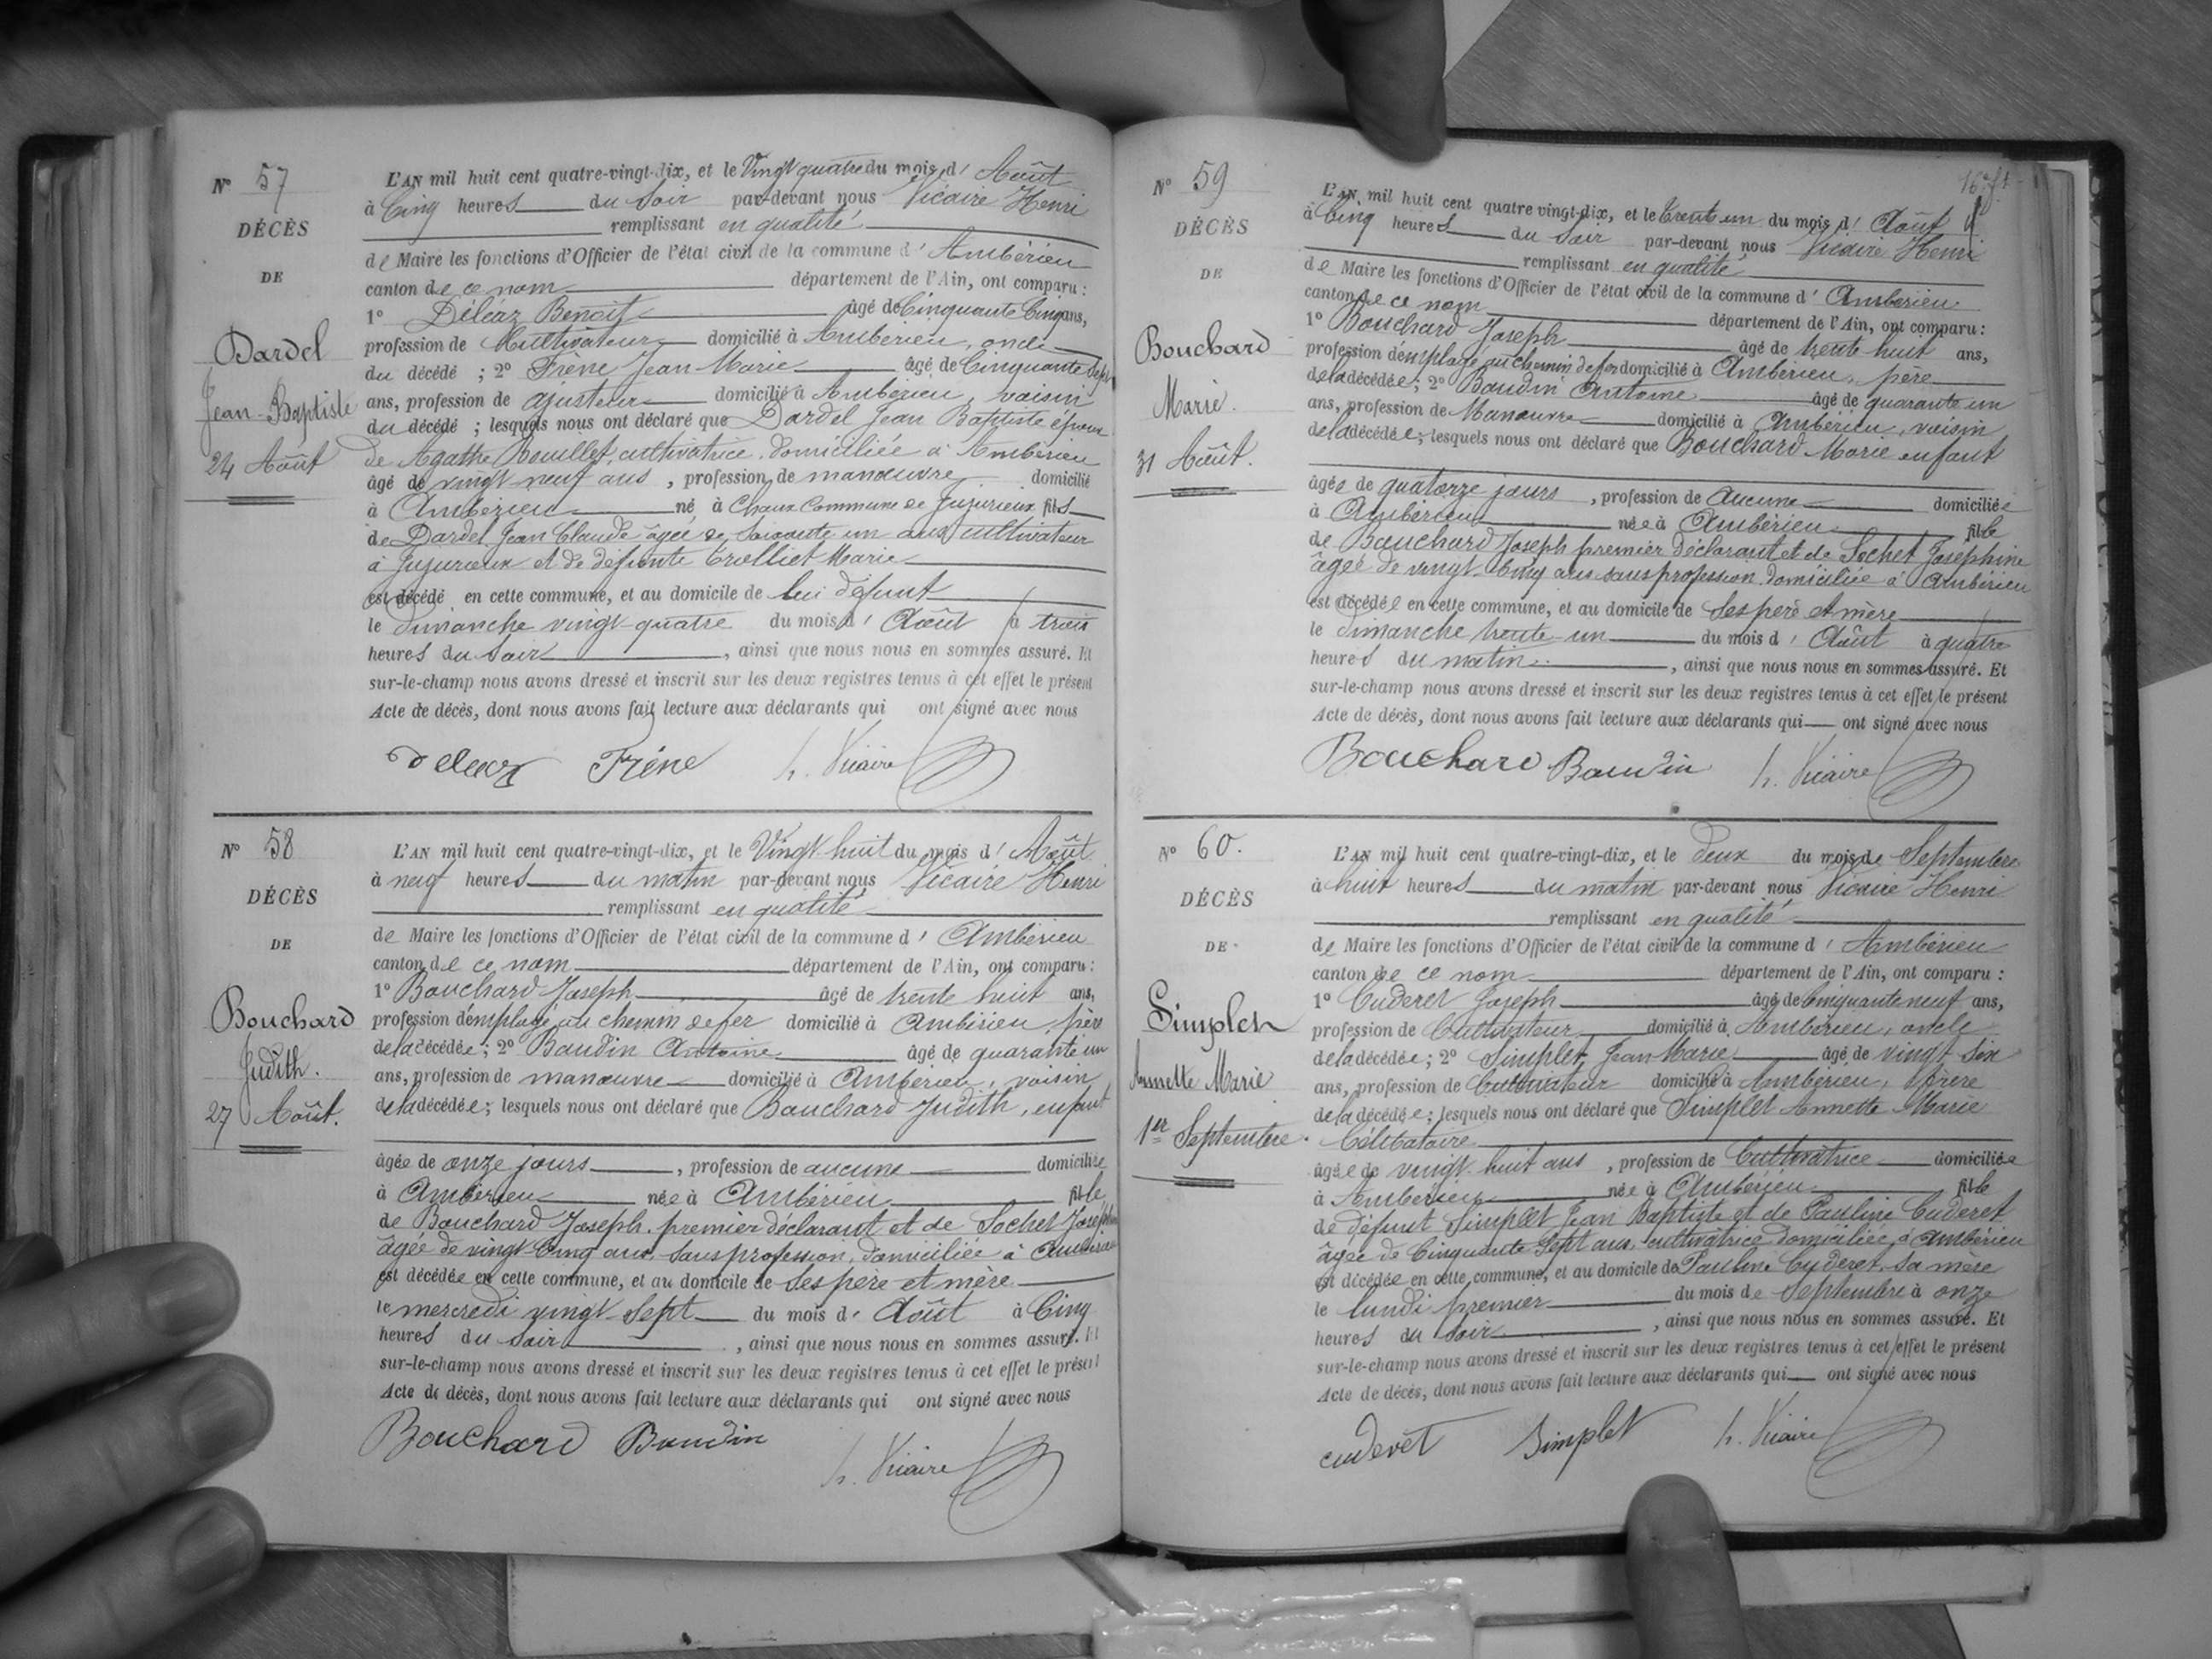 Nº 57
DÉCÈS
DE
Dardel
Jean-Baptiste
24 Août
L'AN mil huit cent quatre-vingt-dix, et le Vingt quatre du mois d' Août
à Cinq heures du Soir par-devant nous Vicaire Henri
remplissant en qualité
de Maire les fonctions d'Officier de l'état civil de la commune d' Ambérieu
canton de ce nom département de l'Ain, ont comparu :
1º Déléaz Benoit âgé de Cinquante Cinq ans,
profession de Cultivateur domicilié à Ambérieu, oncle
du décédé ; 2º Frène Jean Marie âgé de Cinquante Sept
ans, profession de ajusteur domicilié à Ambérieu, voisin
du décédé ; lesquels nous ont déclaré que Dardel Jean Baptiste époux
de Agathe Bouillet, cultivatrice, domiciliée à Ambérieu
âgé de vingt neuf ans, profession de manœuvre domicilié
à Ambérieu né à Chaux Commune de Jujurieux fils
de Dardel Jean Claude âgé de Soixante un ans cultivateur
à Jujurieux et de défunte Trolliet Marie
est décédé en cette commune, et au domicile de lui défunt
le dimanche vingt-quatre du mois d' Août à trois
heures du Soir, ainsi que nous nous en sommes assuré. Et
sur-le-champ nous avons dressé et inscrit sur les deux registres tenus à cet effet le présent
Acte de décès, dont nous avons fait lecture aux déclarants qui ont signé avec nous
Deleaz Frène h. Vicaire
Nº 58
DÉCÈS
DE
Bouchard
Judith.
27 Août.
L'AN mil huit cent quatre-vingt-dix, et le Vingt-huit du mois d' Août
à neuf heures du matin par-devant nous Vicaire Henri
remplissant en qualité
de Maire les fonctions d'Officier de l'état civil de la commune d' Ambérieu
canton de ce nom département de l'Ain, ont comparu :
1º Bouchard Joseph âgé de trente huit ans,
profession d'employé au chemin de fer domicilié à Ambérieu, père
de la décédée ; 2º Baudin Antoine âgé de quarante un
ans, profession de manœuvre domicilié à Ambérieu, voisin
de la décédée ; lesquels nous ont déclaré que Bouchard Judith, enfant
âgée de onze jours, profession de aucune domiciliée
à Ambérieu née à Ambérieu fille
de Bouchard Joseph, premier déclarant et de Sochet Joséphine
âgée de vingt-Cinq ans, sans profession, domiciliée à Ambérieu
est décédée en cette commune, et au domicile de ses père et mère
le mercredi vingt-Sept du mois d' Août à Cinq
heures du Soir, ainsi que nous nous en sommes assuré. Et
sur-le-champ nous avons dressé et inscrit sur les deux registres tenus à cet effet le présent
Acte de décès, dont nous avons fait lecture aux déclarants qui ont signé avec nous
Bouchard Baudin h. Vicaire
Nº 59
DÉCÈS
DE
Bouchard
Marie.
31 Août.
L'AN mil huit cent quatre vingt-dix, et le trente un du mois d' Août
à Cinq heures du Soir par-devant nous Vicaire Henri
remplissant en qualité
de Maire les fonctions d'Officier de l'état civil de la commune d' Ambérieu
canton de ce nom département de l'Ain, ont comparu :
1º Bouchard Joseph âgé de trente huit ans,
profession d'employé au chemin de fer domicilié à Ambérieu, père
de la décédée ; 2º Baudin Antoine âgé de quarante un
ans, profession de Manœuvre domicilié à Ambérieu, voisin
de la décédée ; lesquels nous ont déclaré que Bouchard Marie enfant
âgée de quatorze jours, profession de aucune domiciliée
à Ambérieu née à Ambérieu fille
de Bouchard Joseph premier déclarant et de Sochet Joséphine
âgée de vingt-Cinq ans sans profession domiciliée à Ambérieu
est décédée en cette commune, et au domicile de ses père et mère
le dimanche trente-un du mois d' Août à quatre
heures du matin, ainsi que nous nous en sommes assuré. Et
sur-le-champ nous avons dressé et inscrit sur les deux registres tenus à cet effet le présent
Acte de décès, dont nous avons fait lecture aux déclarants qui ont signé avec nous
Bouchard Baudin h. Vicaire
Nº 60.
DÉCÈS
DE
Simplet
Annette Marie
1er Septembre.
L'AN mil huit cent quatre-vingt-dix, et le deux du mois de Septembre
à huit heures du matin par-devant nous Vicaire Henri
remplissant en qualité
de Maire les fonctions d'Officier de l'état civil de la commune d' Ambérieu
canton de ce nom département de l'Ain, ont comparu :
1º Cuderet Joseph âgé de Cinquante neuf ans,
profession de Cultivateur domicilié à Ambérieu, oncle
de la décédée ; 2º Simplet Jean Marie âgé de vingt Six
ans, profession de Cultivateur domicilié à Ambérieu, frère
de la décédée ; lesquels nous ont déclaré que Simplet Annette Marie
Célibataire
âgée de vingt-huit ans, profession de Cultivatrice domiciliée
à Ambérieu née à Ambérieu fille
de défunt Simplet Jean Baptiste et de Pauline Cuderet
âgée de Cinquante Sept ans, cultivatrice domiciliée à Ambérieu
est décédée en cette commune, et au domicile de Pauline Cuderet, sa mère
le lundi premier du mois de Septembre à onze
heures du Soir, ainsi que nous nous en sommes assuré. Et
sur-le-champ nous avons dressé et inscrit sur les deux registres tenus à cet effet le présent
Acte de décès, dont nous avons fait lecture aux déclarants qui ont signé avec nous
cuderet Simplet h. Vicaire